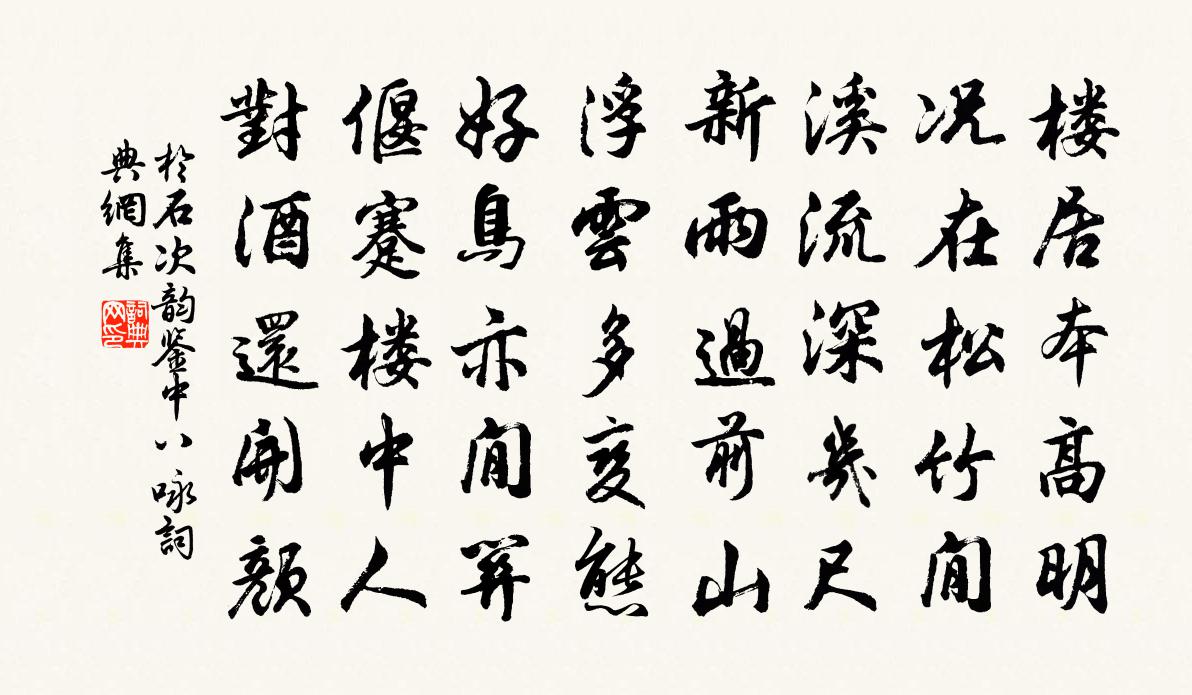 楼居本高明
况在松竹間
溪流深幾尺
新雨過前山
浮雲多変態
好鳥亦間関
偃蹇楼中人
對酒還開顏
於石次韵鉴中八咏詞
典網集
詞典
网印